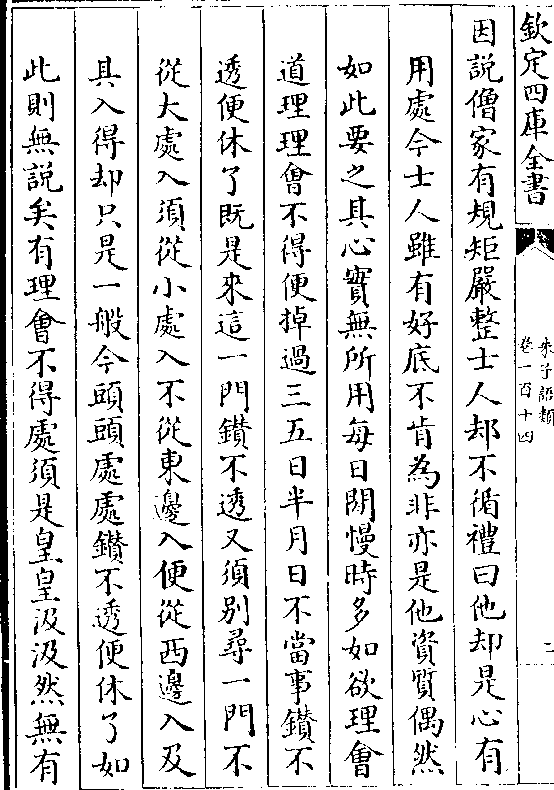 欽定四庫全書
朱子語類
卷一百十四
二
因説僧家有規矩嚴整士人却不循禮曰他却是心有
用處今士人雖有好底不肯為非亦是他資質偶然
如此要之其心實無所用每日閒慢時多如欲理會
道理理會不得便掉過三五日半月日不當事鑚不
透便休了既是來這一門鑚不透又須别尋一門不
從大處入須從小處入不從東邊入便從西邊入及
其入得却只是一般今頭頭處處鑚不透便休了如
此則無説矣有理會不得處須是皇皇汲汲然無有